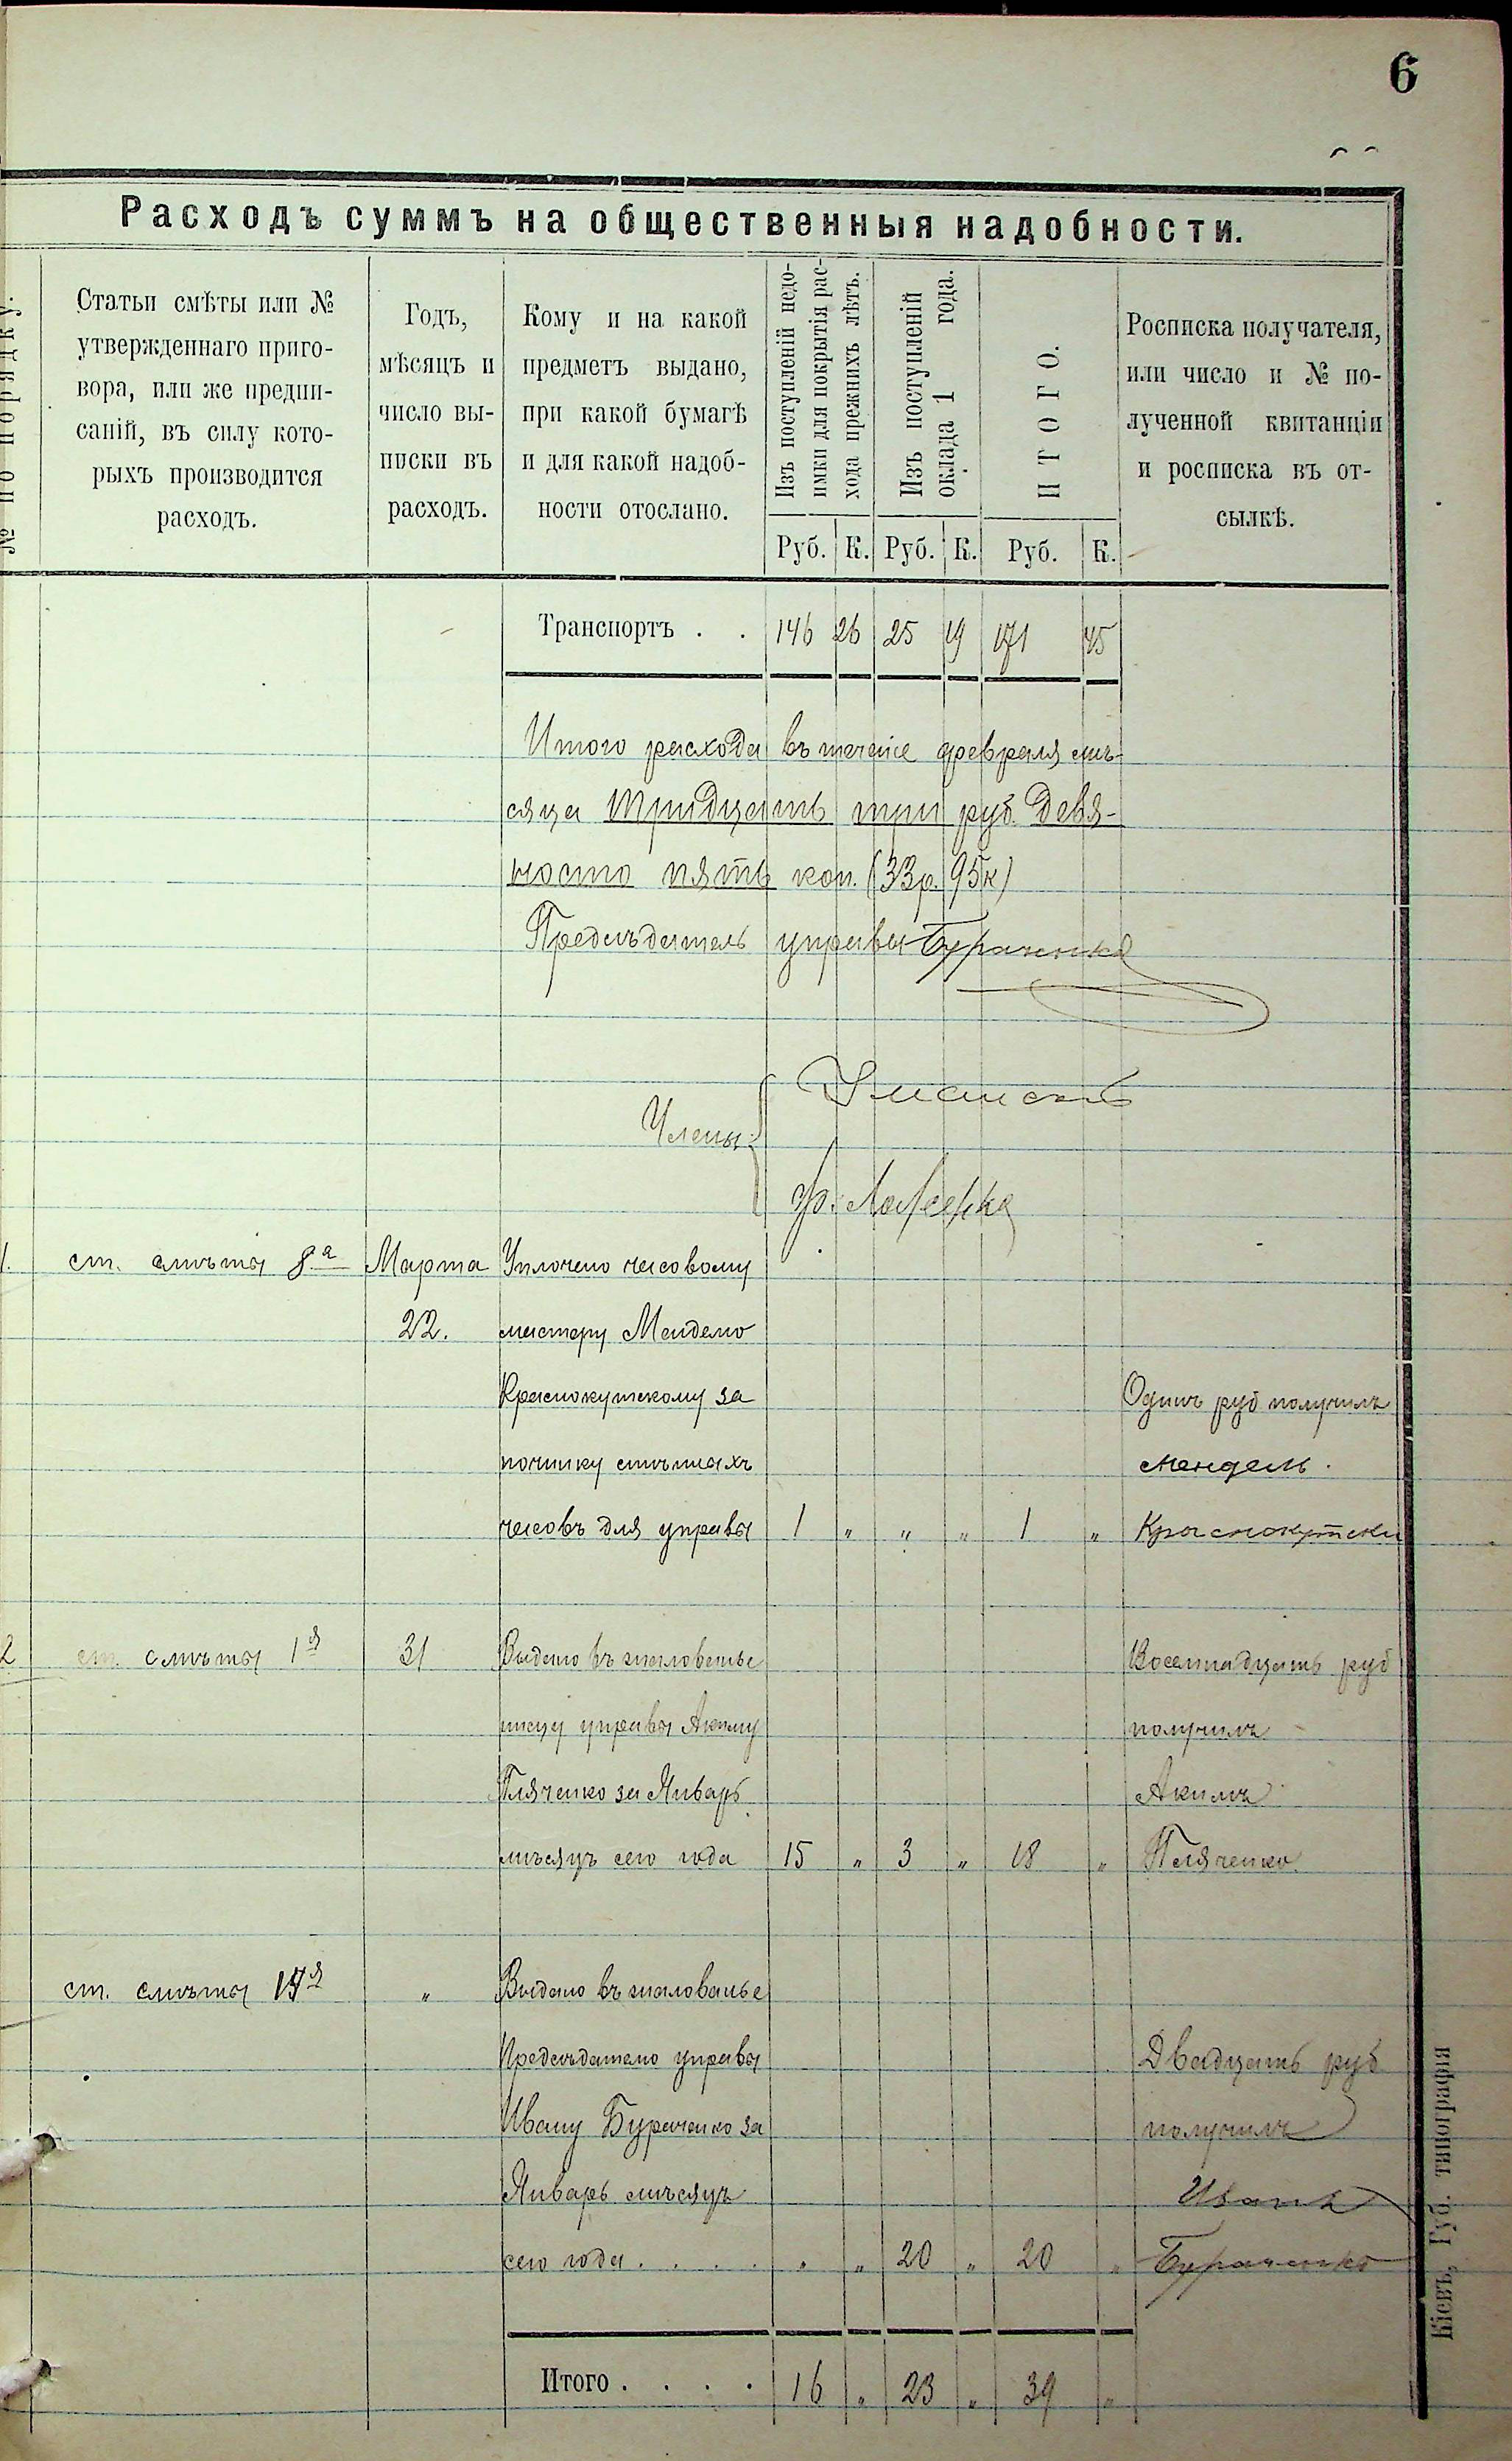 6
Расходъ суммъ на общественныя надобности.
№ по порядку.
Статьи смѣты или №
утвержденнаго приго-
вора, или же предпи-
саній, въ силу кото-
рыхъ производится
расходъ.
Годъ,
мѣсяцъ и
число вы-
писки въ
расходъ.
Кому и на какой
предметъ выдано,
при какой бумагѣ
и для какой надоб-
ности отослано.
Изъ поступленій недо-
имки для покрытія рас-
хода прежнихъ лѣтъ.
Изъ поступленій
оклада 1 года.
ИТОГО.
Росписка получателя,
или число и № по-
лученной квитанціи
и росписка въ от-
сылкѣ.
Руб. К. Руб. К. Руб. К.
Транспортъ . . 146 26 25 19 171 45
Итого расхода въ течепіе февраля мѣ-
сяца тридцать три руб. девя-
носто пять коп. (33р. 95к)
Предсѣдатель управы Бураченко
Члены:
Уманскій
1. ст. смѣты 8а Марта Уплочено часовому
22. мастеру Менделю
Краснокутскому за Одинъ руб получилъ
починку стѣнныхъ Мендель.
часовъ для управы 1 „ „ „ 1 „ Краснокутски
2 ст. смѣты 1я 31 Выдано въ жалованье Восемнадцать руб
писцу управы Акиму получилъ
Пляченко за Январь Акимъ
мѣсяцъ сего года 15 „ 3 „ 18 „ Пляченко.
ст. смѣты 17я „ Выдано въ жалованье
Предсѣдателю управы Двадцать руб
Ивану Бураченко за получилъ
Январь мѣсяцъ Иванъ
сего года . . . . „ „ 20 „ 20 „ Бураченко
Итого . . . . 16 „ 23 „ 39 „
Кіевъ, Губ. типографія